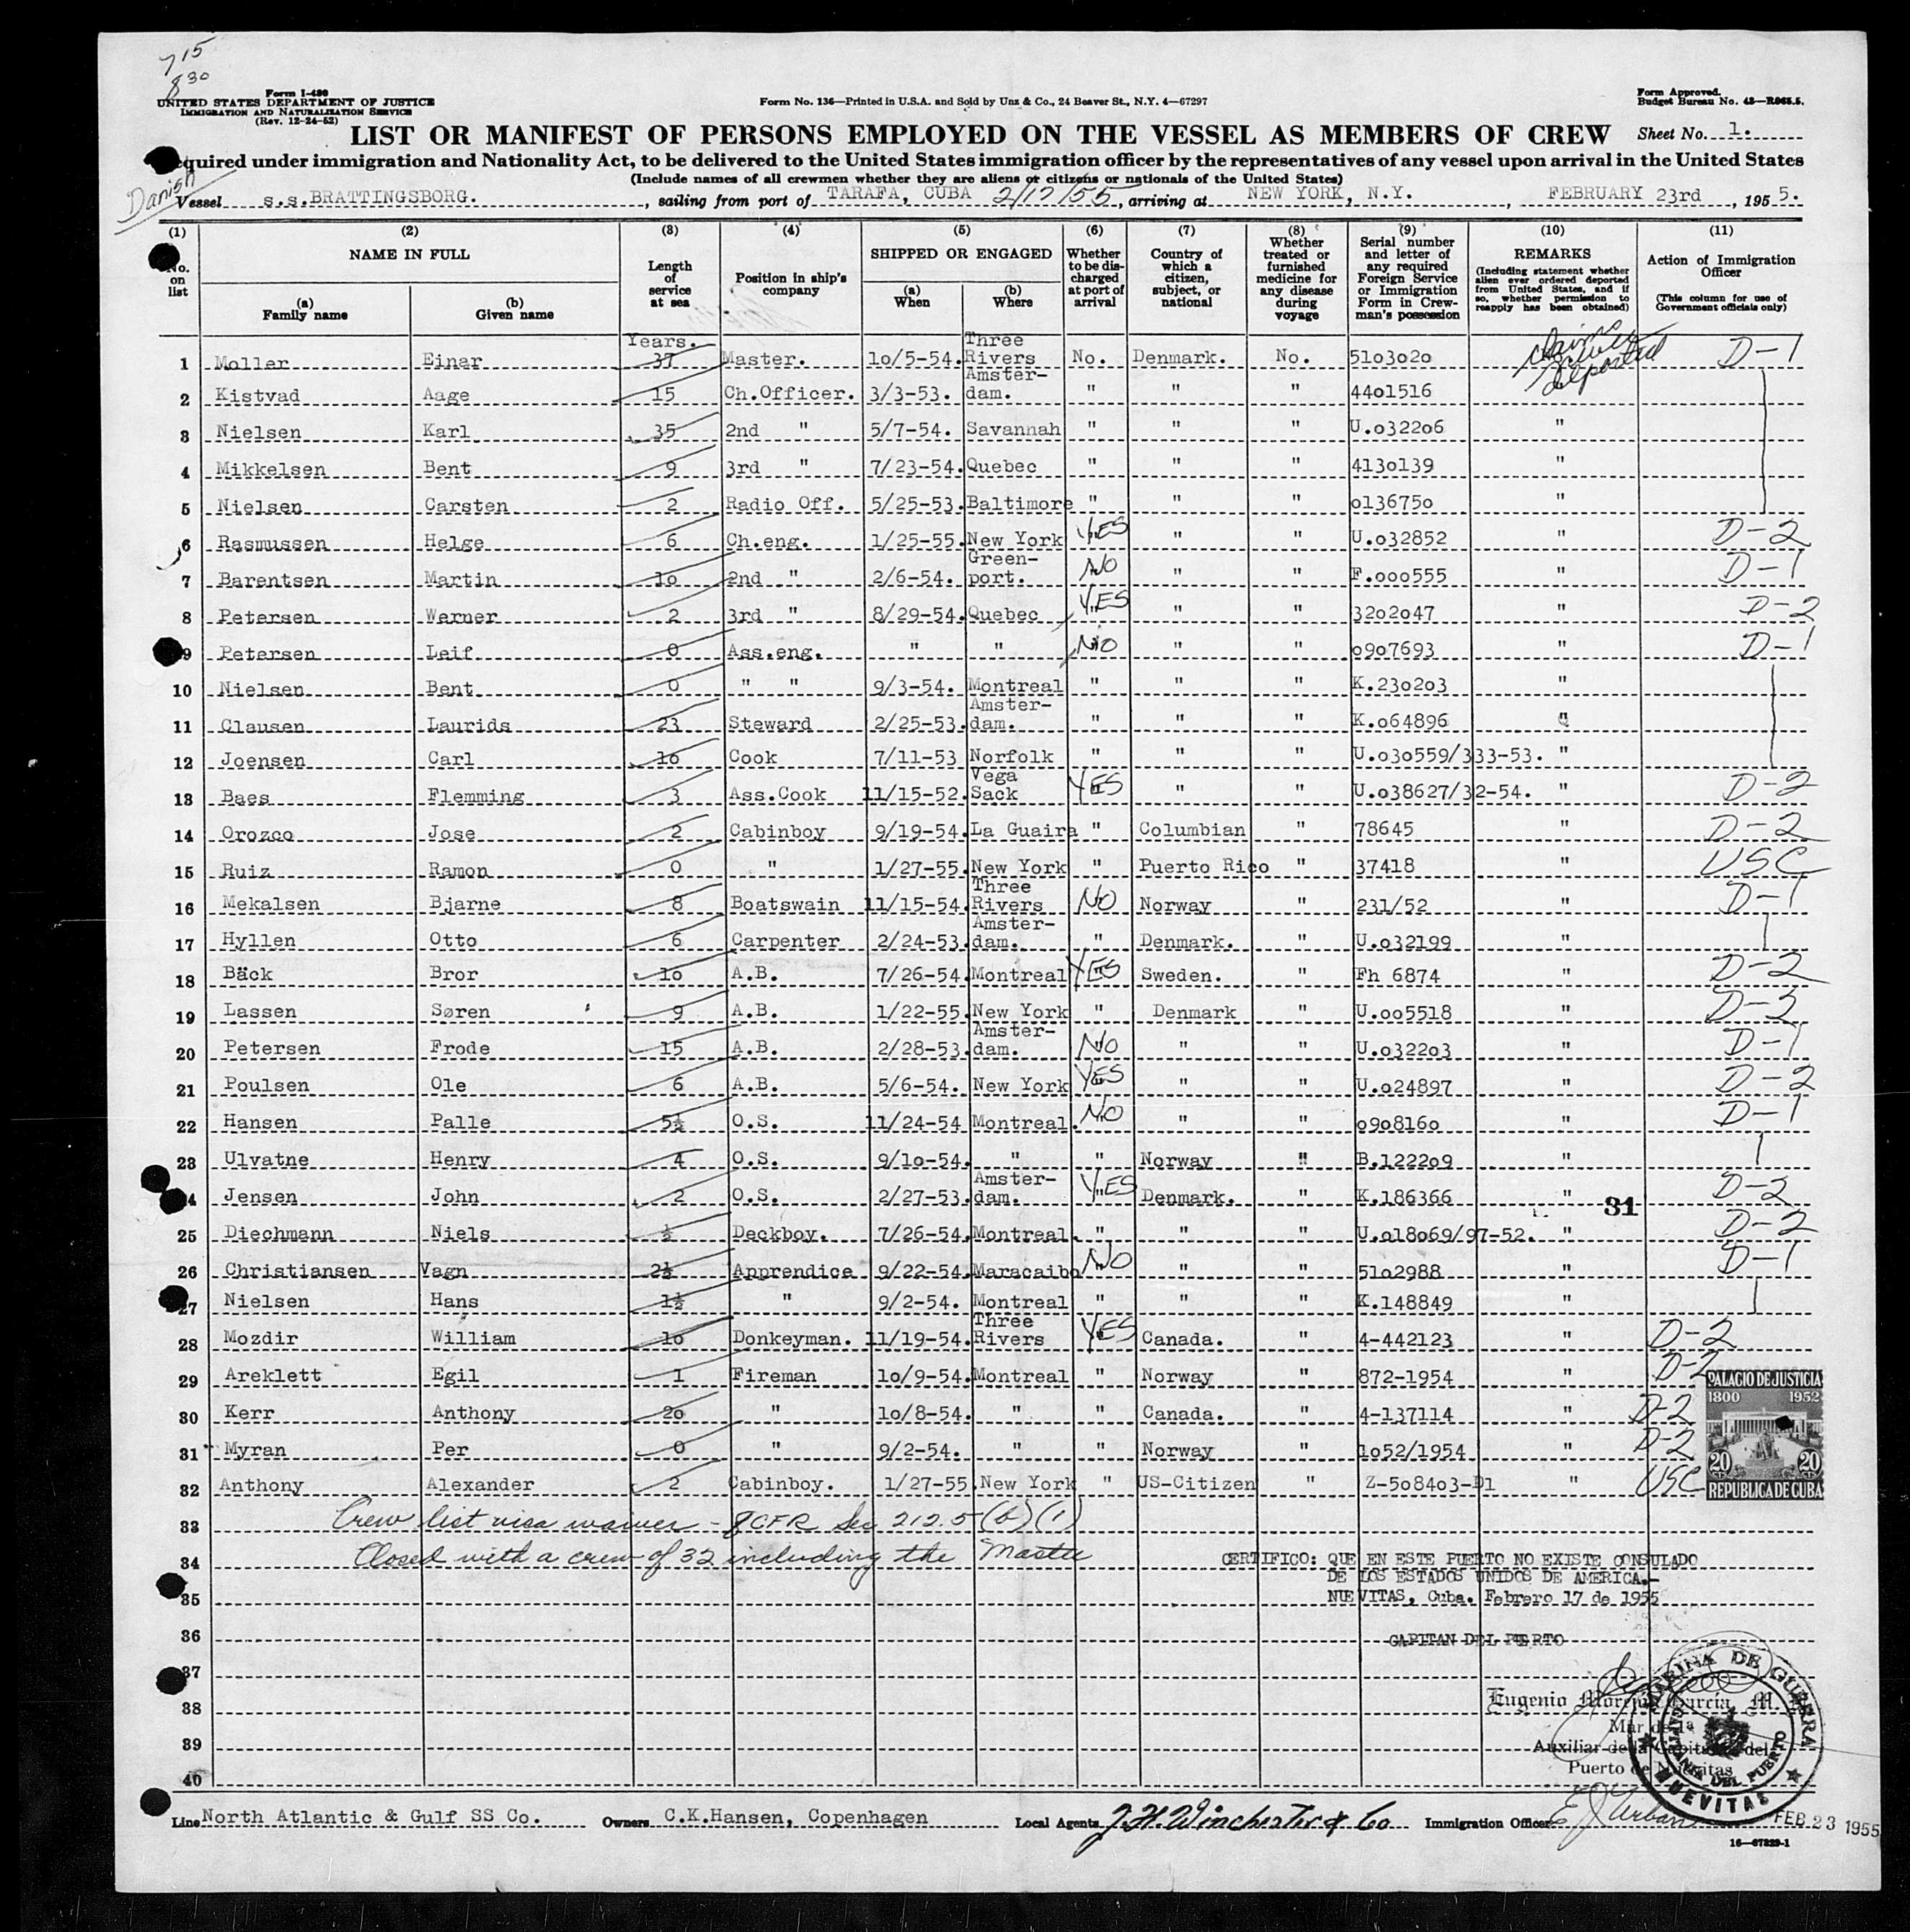 715
830
Form I-480
UNITED STATES DEPARTMENT OF JUSTICE
IMMIGRATION AND NATURALIZATION SERVICE
(Rev. 12-24-52)
Form No. 136—Printed in U.S.A. and Sold by Unz & Co., 24 Beaver St., N.Y. 4—67297
Form Approved.
Budget Bureau No. 43—R065.5.
LIST OR MANIFEST OF PERSONS EMPLOYED ON THE VESSEL AS MEMBERS OF CREW
Sheet No. 1.
equired under immigration and Nationality Act, to be delivered to the United States immigration officer by the representatives of any vessel upon arrival in the United States
(Include names of all crewmen whether they are aliens or citizens or nationals of the United States)
Danish
Vessel s.s.BRATTINGSBORG., sailing from port of TARAFA, CUBA 2/17/55, arriving at NEW YORK, N.Y., FEBRUARY 23rd, 1955.
(1) No. on list (2) NAME IN FULL (a) Family name (b) Given name (3) Length of service at sea (4) Position in ship's company (5) SHIPPED OR ENGAGED (a) When (b) Where (6) Whether to be discharged at port of arrival (7) Country of which a citizen, subject, or national (8) Whether treated or furnished medicine for any disease during voyage (9) Serial number and letter of any required Foreign Service or Immigration Form in Crewman's possession (10) REMARKS (Including statement whether alien ever ordered deported from United States, and if so, whether permission to reapply has been obtained) (11) Action of Immigration Officer (This column for use of Government officials only)
Years.
1 Moller Einar 37 Master. 10/5-54. Three Rivers No. Denmark. No. 5103020 deported D-1
2 Kistvad Aage 15 Ch.Officer. 3/3-53. Amster-dam. " " " 4401516
3 Nielsen Karl 35 2nd " 5/7-54. Savannah " " " U.032206 "
4 Mikkelsen Bent 9 3rd " 7/23-54. Quebec " " " 4130139 "
5 Nielsen Carsten 2 Radio Off. 5/25-53. Baltimore " " " 0136750 "
6 Rasmussen Helge 6 Ch.eng. 1/25-55. New York YES " " U.032852 " D-2
7 Barentsen Martin 10 2nd " 2/6-54. Green-port. NO " " F.000555 " D-1
8 Petersen Werner 2 3rd " 8/29-54. Quebec YES " " 3202047 " D-2
9 Petersen Leif 0 Ass.eng. " " NO " " 0907693 " D-1
10 Nielsen Bent 0 " " 9/3-54. Montreal " " " K.230203 "
11 Clausen Laurids 23 Steward 2/25-53. Amster-dam. " " " K.064896 "
12 Joensen Carl 10 Cook 7/11-53 Norfolk " " " U.030559/333-53. "
13 Baes Flemming 3 Ass.Cook 11/15-52. Vega Sack YES " " U.038627/32-54. " D-2
14 Orozco Jose 2 Cabinboy 9/19-54. La Guaira " Columbian " 78645 " D-2
15 Ruiz Ramon 0 " 1/27-55. New York " Puerto Rico " 37418 " USC
16 Mekalsen Bjarne 8 Boatswain 11/15-54. Three Rivers NO Norway " 231/52 " D-1
17 Hyllen Otto 6 Carpenter 2/24-53. Amster-dam. " Denmark. " U.032199 "
18 Bäck Bror 10 A.B. 7/26-54. Montreal YES Sweden. " Fh 6874 " D-2
19 Lassen Søren 9 A.B. 1/22-55. New York " Denmark " U.005518 " D-2
20 Petersen Frode 15 A.B. 2/28-53. Amster-dam. NO " " U.032203 " D-1
21 Poulsen Ole 6 A.B. 5/6-54. New York YES " " U.024897 " D-2
22 Hansen Palle 5½ O.S. 11/24-54 Montreal. NO " " 0908160 " D-1
23 Ulvatne Henry 4 O.S. 9/10-54. " " Norway " B.122209 "
24 Jensen John 2 O.S. 2/27-53. Amster-dam. YES Denmark. " K.186366 " D-2
31
25 Diechmann Niels ½ Deckboy. 7/26-54. Montreal. " " " U.018069/97-52. " D-2
26 Christiansen Vagn 2½ Apprendice 9/22-54. Maracaibo NO " " 5102988 " D-1
27 Nielsen Hans 1½ " 9/2-54. Montreal " " " K.148849 "
28 Mozdir William 10 Donkeyman. 11/19-54. Three Rivers YES Canada. " 4-442123 " D-2
29 Areklett Egil 1 Fireman 10/9-54. Montreal " Norway " 872-1954 " D-2
30 Kerr Anthony 20 " 10/8-54. " " Canada. " 4-137114 " D-2
31 Myran Per 0 " 9/2-54. " " Norway " 1052/1954 " D-2
32 Anthony Alexander 2 Cabinboy. 1/27-55. New York " US-Citizen " Z-508403-D1 " USC
PALACIO DE JUSTICIA
1800 1952
20 CTS 20 CTS
REPUBLICA DE CUBA
33 Crew list visa waiver - 8 CFR Sec 212.5 (b) (1)
34 Closed with a crew of 32 including the Master
CERTIFICO: QUE EN ESTE PUERTO NO EXISTE CONSULADO
DE LOS ESTADOS UNIDOS DE AMERICA.-
35 NUEVITAS, Cuba. Febrero 17 de 1955
36 CAPITAN DEL PUERTO
37
38 Eugenio Morejon Garcia, M.
Mar de 1ª
39 Auxiliar de la Capitania del
Puerto de Nuevitas
40
MARINA DE GUERRA
CAPITANIA DEL PUERTO
NUEVITAS
Line North Atlantic & Gulf SS Co. Owners C.K.Hansen, Copenhagen Local Agents J.H. Winchester & Co Immigration Officer E J Urban FEB 23 1955
16—67829-1